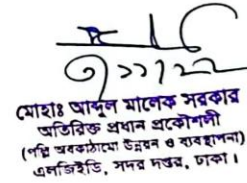 ৩১১২২
মোহাঃ আব্দুল মালেক সরকার
অতিরিক্ত প্রধান প্রকৌশলী
(পল্লি অবকাঠামো উন্নয়ন ও ব্যবস্থাপনা)
এলজিইডি, সদর দপ্তর, ঢাকা।